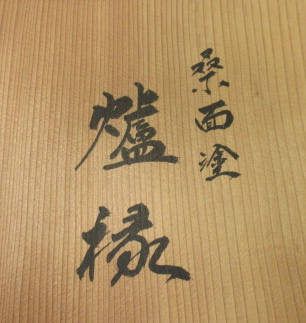 桑面塗
爐椽